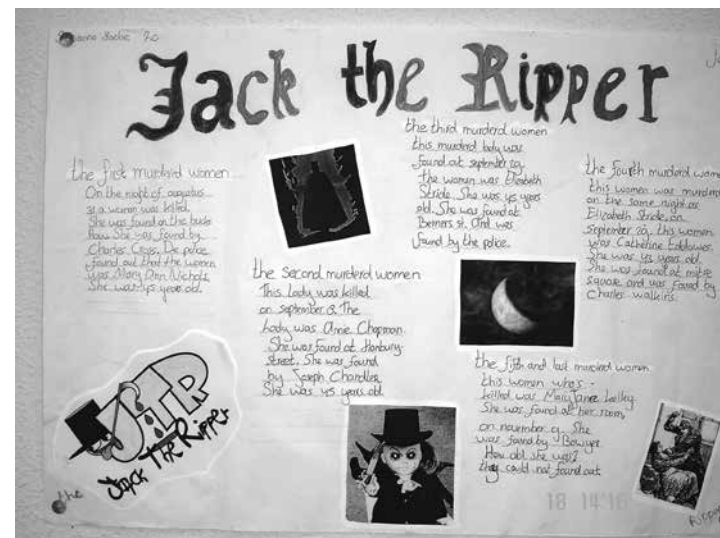 Jack the Ripper
the first murderd women
On the night of augustus
31 a woman was killed.
She was found on the bucks
Row. She was found by
Charles Cross. De police
found out that the women
was Mary Ann Nichols
She was 45 year old.
the second murderd women
This Lady was killed
on september 8. The
body was Anie Chapman.
She was found at Hanbury
Street. She was found
by Joseph Chandler
She was 45 years old
the third murderd women
this murderd body was
found at september 29
the women was Elizabeth
Stride. She was 45 years
old. She was found at
Berners st. And was
found by the police.
the fourth murderd wome
this women was murderd
on the same night as
Elizabeth Stride on
september 29. this women
was Catherine Eddowes.
She was 45 years old.
She was found at mitre
square and was found by
Charles walkins.
the fifth and last murderd women
this women who's
killed was Mary Jane
She was found at her room,
on november 9. She
was found by Bowyer
How old she was?
they could not found out
JTR
Jack The Ripper
the
18 14:16